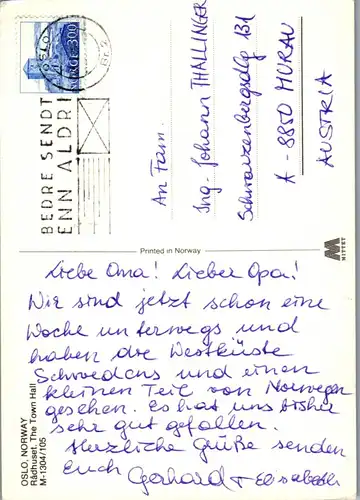 OSLO
NORGE 300
BEDRE SENDT
ENN ALDRI
An Fam.
Ing. Johann THALLINGER
Schwarzenbergsdlg 131
A - 8850 MURAU
AUSTRIA
Printed in Norway
MITTET
Liebe Oma! Lieber Opa!
Wir sind jetzt schon eine
Woche unterwegs und
haben die Westküste
Schwedens und einen
kleinen Teil von Norwegen
gesehen. Es hat uns bisher
sehr gut gefallen.
Herzliche Grüße senden
Euch
Gerhard + Elisabeth
OSLO, NORWAY
Rådhuset. The Town Hall
M-1304/105